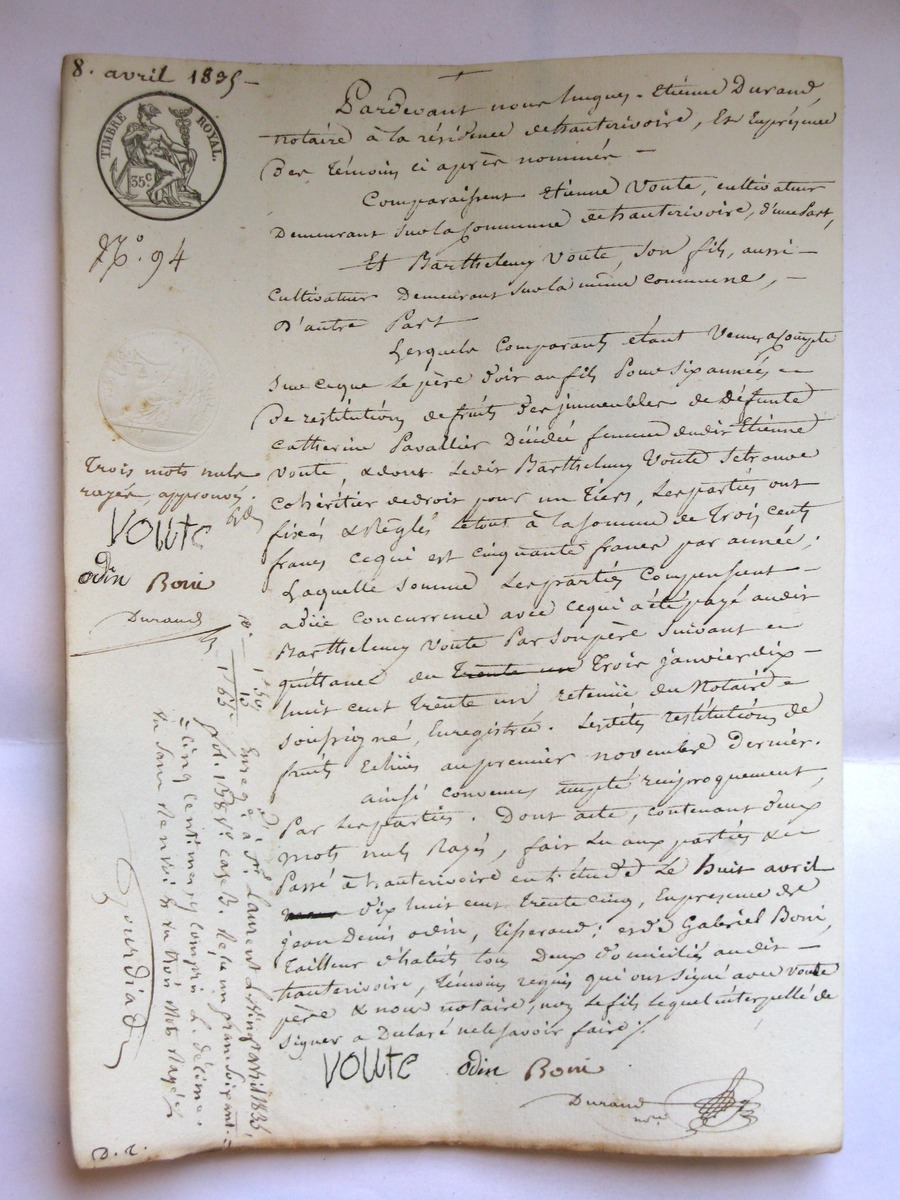 8. avril 1835 —
TIMBRE ROYAL.
35c
N.o 94
Pardevant nous hugues - Etiénne Durand,
notaire à la résidence de hauterivoire, Et En présence
Des témoins ci après nommés —
Comparaissent Etiénne Voute, cultivateur
Demeurant sur la Commune de hauterivoire, d'une Part,
Et Barthelemy Voute, son fils, aussi —
Cultivateur Demeurant sur la même commune, —
D'autre Part
Lesquels Comparants étant Venus à Compte
Sur ce que le père doit au fils Pour Six années
De restitutions de fruits des immeubles de Défunte
Catherine Pavallier Décédée femme dudit Etiénne
Voute, & dont Ledit Barthelemy Voute Se trouve
Cohéritier de droit pour un tiers, Les parties ont
fixés & Réglés le tout à la somme de trois cents
francs ce qui est cinquante francs par année;
Laquelle somme Les parties Compensent —
a düe Concurrence avec ce qui a été payé audit
Barthelemy Voute Par son père Suivant
quittance du trente un trois janvier dix —
huit cent trente un retenüe du Notaire
soussigné, Enregistrée. Lesdites restitutions de
fruits Echües au premier novembre Dernier.
ainsi convenu accepté réciproquement,
Par Les parties. Dont acte, contenant deux
mots nuls Rayés, fait Lu aux parties &
Passé à hauterivoire en l'étude Le huit avril
dix huit cent trente cinq, En présence de
jean Denis odin, tisserand; et de Gabriel Boni
tailleur d'habits tous Deux domiciliés audit —
hauterivoire, témoins requis qui ont signé avec Voute
père & nous notaire, non Le fils Lequel interpellé de
signer a Déclaré ne le savoir faire /.
VOUTE odin Boni
Durand
nre
Trois mots nuls
rayés, approuvés.
VOUTE
odin Boni
Durand
1 50
15
1 65
Enreg. à St. Laurent Le vingt avril 1835,
fol. 158 Vo. case B. Reçu un franc soixante
cinq centimes y compris Le décime
Sans Renvoi & trois Mots Rayés
Gourdiad
D. 2.